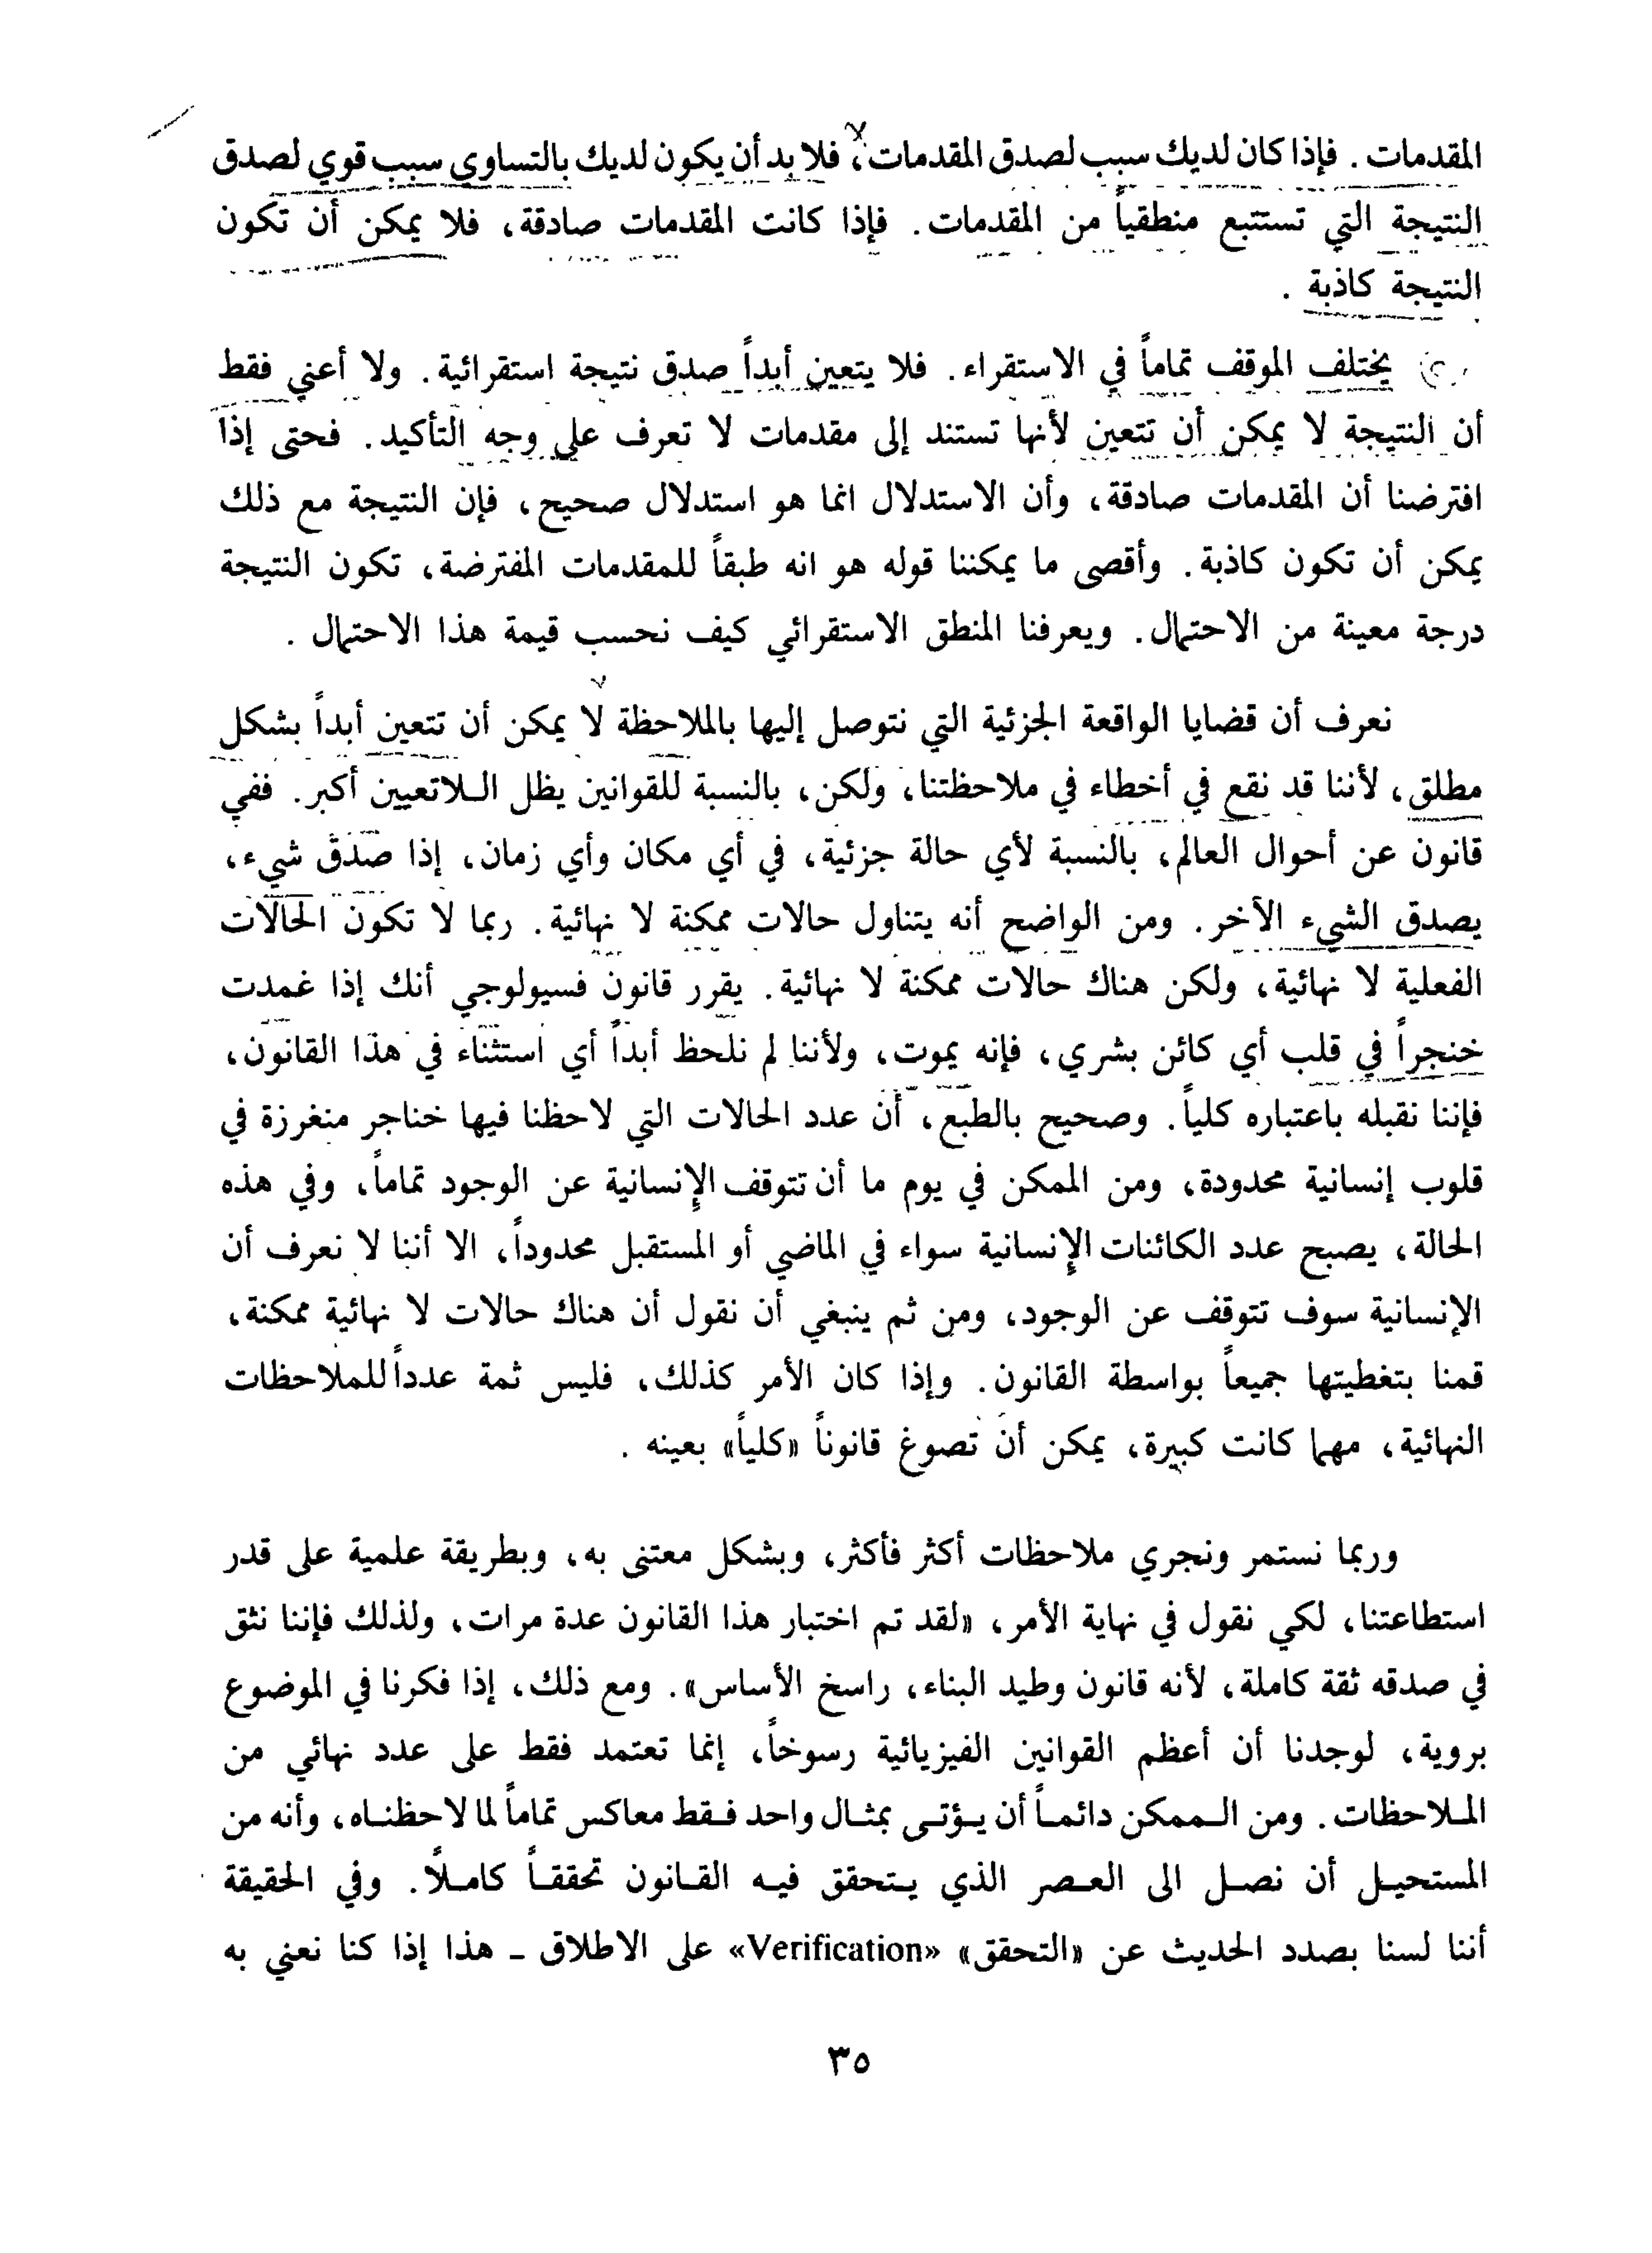 المقدمات. فإذا كان لديك سبب لصدق المقدمات، فلا بد أن يكون لديك بالتساوي سبب قوي لصدق
النتيجة التي تستتبع منطقياً من المقدمات. فإذا كانت المقدمات صادقة، فلا يمكن أن تكون
النتيجة كاذبة.
يختلف الموقف تماماً في الاستقراء. فلا يتعين أبداً صدق نتيجة استقرائية. ولا أعني فقط
أن النتيجة لا يمكن أن تتعين لأنها تستند إلى مقدمات لا تعرف على وجه التأكيد. فحتى إذا
افترضنا أن المقدمات صادقة، وأن الاستدلال انما هو استدلال صحيح، فإن النتيجة مع ذلك
يمكن أن تكون كاذبة. وأقصى ما يمكننا قوله هو انه طبقاً للمقدمات المفترضة، تكون النتيجة
درجة معينة من الاحتمال. ويعرفنا المنطق الاستقرائي كيف نحسب قيمة هذا الاحتمال.
نعرف أن قضايا الواقعة الجزئية التي نتوصل إليها بالملاحظة لا يمكن أن تتعين أبداً بشكل
مطلق، لأننا قد نقع في أخطاء في ملاحظتنا، ولكن، بالنسبة للقوانين يظل الـلاتعيين أكبر. ففي
قانون عن أحوال العالم، بالنسبة لأي حالة جزئية، في أي مكان وأي زمان، إذا صدق شيء،
يصدق الشيء الآخر. ومن الواضح أنه يتناول حالات ممكنة لا نهائية. ربما لا تكون الحالات
الفعلية لا نهائية، ولكن هناك حالات ممكنة لا نهائية. يقرر قانون فسيولوجي أنك إذا غمدت
خنجراً في قلب أي كائن بشري، فإنه يموت، ولأننا لم نلحظ أبداً أي استثناء في هذا القانون،
فإننا نقبله باعتباره كلياً. وصحيح بالطبع، أن عدد الحالات التي لاحظنا فيها خناجر منغرزة في
قلوب إنسانية محدودة، ومن الممكن في يوم ما أن تتوقف الإنسانية عن الوجود تماماً، وفي هذه
الحالة، يصبح عدد الكائنات الإنسانية سواء في الماضي أو المستقبل محدوداً، الا أننا لا نعرف أن
الإنسانية سوف تتوقف عن الوجود، ومن ثم ينبغي أن نقول أن هناك حالات لا نهائية ممكنة،
قمنا بتغطيتها جميعاً بواسطة القانون. وإذا كان الأمر كذلك، فليس ثمة عدداً للملاحظات
النهائية، مهما كانت كبيرة، يمكن أن تصوغ قانوناً «كلياً» بعينه.
وربما نستمر ونجري ملاحظات أكثر فأكثر، وبشكل معتنى به، وبطريقة علمية على قدر
استطاعتنا، لكي نقول في نهاية الأمر، «لقد تم اختبار هذا القانون عدة مرات، ولذلك فإننا نثق
في صدقه ثقة كاملة، لأنه قانون وطيد البناء، راسخ الأساس». ومع ذلك، إذا فكرنا في الموضوع
بروية، لوجدنا أن أعظم القوانين الفيزيائية رسوخاً، إنما تعتمد فقط على عدد نهائي من
الملاحظات. ومن الممكن دائماً أن يؤتى بمثال واحد فقط معاكس تماماً لما لاحظناه، وأنه من
المستحيل أن نصل الى العصر الذي يتحقق فيه القانون تحققاً كاملاً. وفي الحقيقة
أننا لسنا بصدد الحديث عن «التحقق» «Verification» على الاطلاق ـ هذا إذا كنا نعني به
٣٥